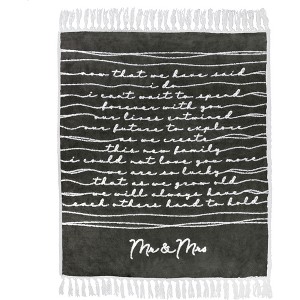 now that we have said
i do
i can't wait to spend
forever with you
our lives entwined
our future to explore
as we create
this new family
i could not love you more
we are so lucky
that as we grow old
we will always have
each others hand to hold
Mr & Mrs